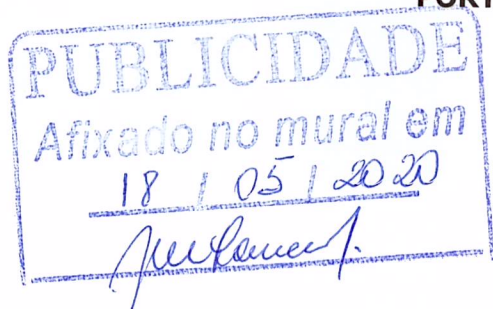 PORT
PUBLICIDADE
Afixado no mural em
18 / 05 / 2020